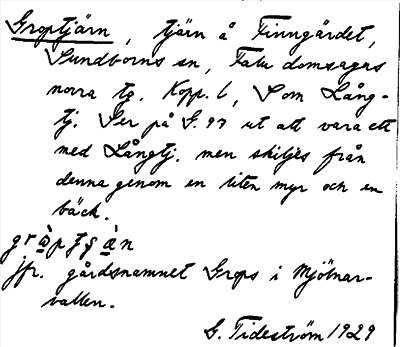 Groptjärn, tjärn å Finngärdet,
Sundborns sn, Falu domsagas
norra tg. Kopp. l, S om Lång-
tj. Ser på G.93 ut att vara ett
med Långtj. men skiljes från
denna genom en liten myr och en
bäck.
jfr. gårdsnamnet Grops i Mjölnar-
vallen.
G. Tideström 1929